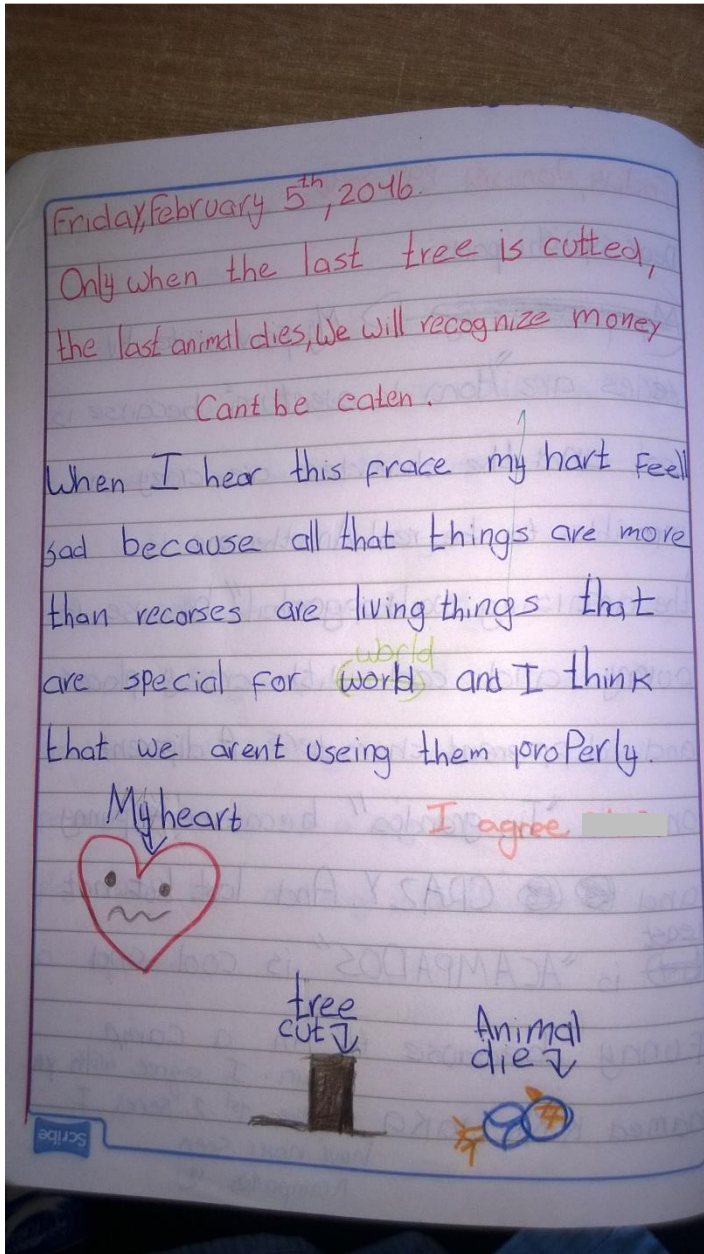 Friday, February 5th, 2016.
Only when the last tree is cutted,
the last animal dies, We will recognize money
Cant be eaten.
When I hear this frace my hart Feel
sad because all that things are more
than recorses are living things that
world
are special for world and I think
that we arent useing them proPerly.
My heart
I agree
tree
cut
Animal
die
Scribe